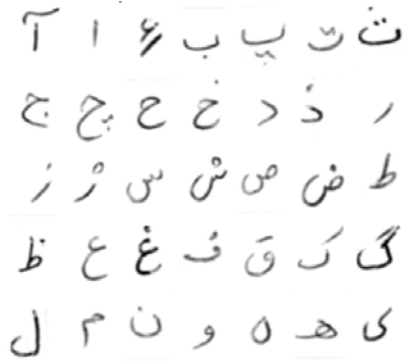 آ ا ب پ ت ث
ج چ ح خ د ذ ر
ز ژ س ش ص ض ط
ظ ع غ ف ق ک گ
ل م ن و ه هـ ی